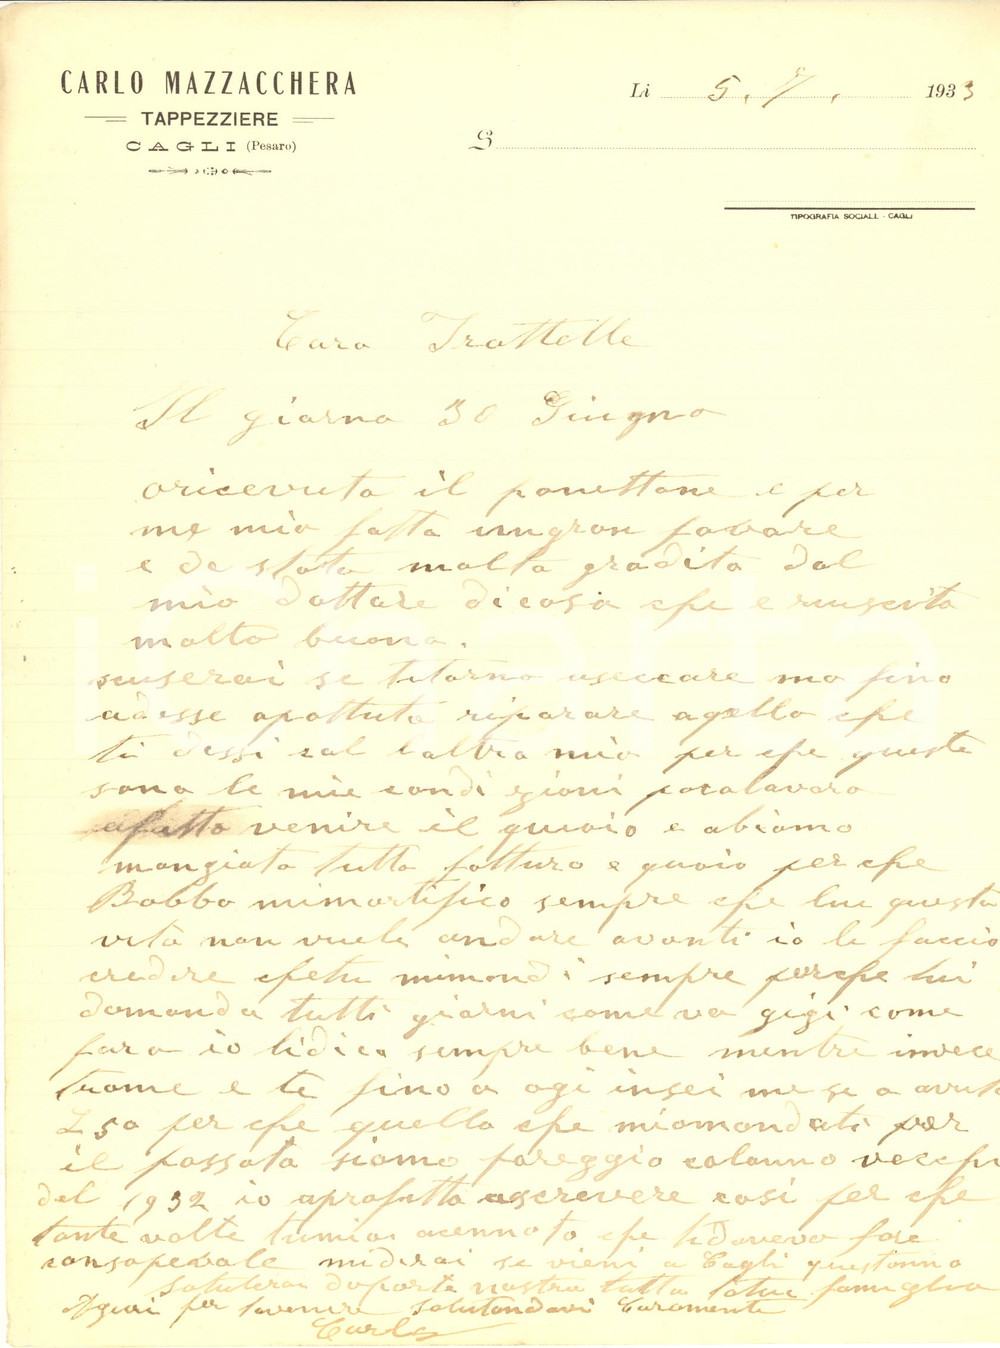 CARLO MAZZACCHERA
TAPPEZZIERE
CAGLI (Pesaro)
Li 5. 7. 1933
S
TIPOGRAFIA SOCIALE - CAGLI
Caro Frattelle
Il giorno 30 Giugno
oricevuto il panettone e per
me mio fatta ungron favore
e de stato molto gradito dal
mio dottore dicosa che e riusceto
molto buono.
scuserai se titorno aseccare mo fino
adesse apottuto riparare aqello che
ti dessi cal laltro mio per che queste
sono le mie condizioni poca lavoro
afatto venire il guaio e abiamo
mangiato tutto fotturo e guaio per che
Babbo mimortifico sempre che lue questa
vita non vuele andare avanti io le faccio
credere chetu mimandi sempre perche lui
domanda tutti giorni come va gigi come
fara io lidico sempre bene mentre invece
trame e te fino a ogi insei mese a avuto
L 50 per che quello che miomandati per
il passato siamo pareggio colanno vecchi
del 1932 io aprofitto ascrevere cosi per che
tante volte tumiai acennato che lidovevo fare
consapevole midirai se vieni a Cagli questanno
saluterai daparte nostra tutta latue famiglia
Aguri per lavenire Salutandovi Caramente
Carlo